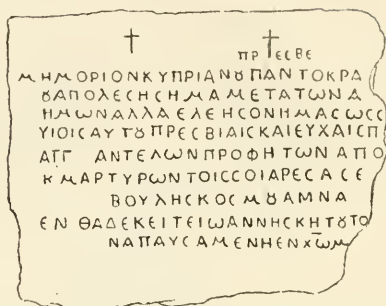 ✝ ✝
ΠΡ ΕCΒΕ
ΜΗΜΟΡΙΟΝΚΥΠΡΙΑΝȣΠΑΝΤΟΚΡΑ
ȣΑΠΟΛΕCΗCΗΜΑΜΕΤΑΤΩΝΑ
ΗΜΩΝΑΛΛΑΕΛΕΗCΟΝΗΜΑCΩCC
ΥΙΟΙCΑΥΤȣΠΡΕCΒΙΑΙCΚΑΙΕΥΧΑΙCΠ
ΑΓΓ ΑΝΤΕΛΩΝΠΡΟΦΗΤΩΝΑΠΟ
ΚΜΑΡΤΥΡΩΝΤΟΙCCΟΙΑΡΕCΑCΕ
ΒΟΥΛΗCΚΟCΜȣΑΜΝΑ
ΕΝΘΑΔΕΚΕΙΤΕΙΩΑΝΝΗCΚΗΤȣΤΟ
ΝΑΠΑΥCΑΜΕΝΗΕΝΧ̅Ω̅Μ